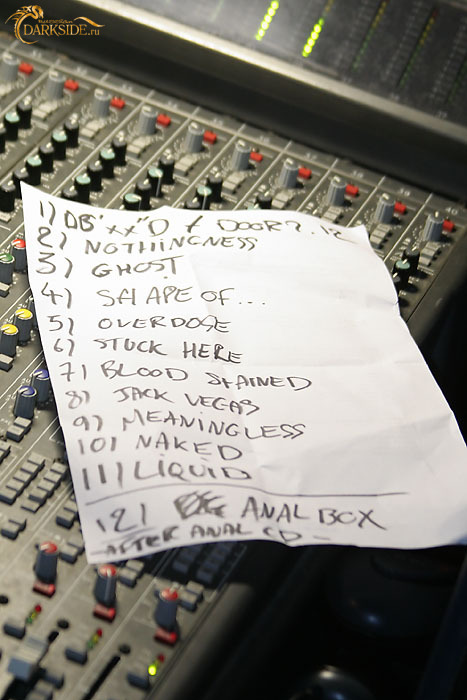 DARKSIDE.ru
1) DB'xx"D / DOOR?.12
2) NOTHINGNESS
3) GHOST
4) SHAPE OF...
5) OVERDOSE
6) STUCK HERE
7) BLOOD STAINED
8) JACK VEGAS
9) MEANINGLESS
10) NAKED
11) LIQUID
12) ANAL BOX
-AFTER ANAL CD-